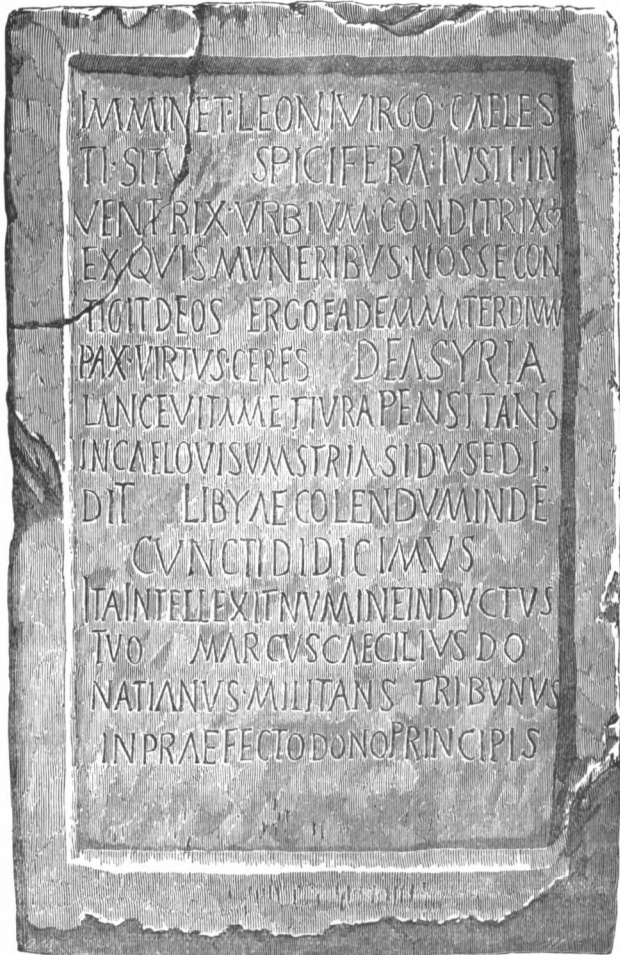 IMMINET·LEONI VIRGO·CAELES
TI·SITV SPICIFERA·IVSTI·IN
VENTRIX·VRBIVM·CONDITRIX
EX QVIS MVNERIBVS·NOSSE CON
TIGIT DEOS ERGO EADEM MATER DIVVM
PAX·VIRTVS·CERES DEA SYRIA
LANCE VITAM ET IVRA PENSITANS
IN CAELO VISVM SYRIA SIDVS EDI·
DIT LIBYAE COLENDVM INDE
CVNCTI DIDICIMVS
ITA INTELLEXIT NVMINE INDVCTVS
TVO MARCVS CAECILIVS DO
NATIANVS·MILITANS TRIBVNVS
IN PRAEFECTO DONO PRINCIPIS